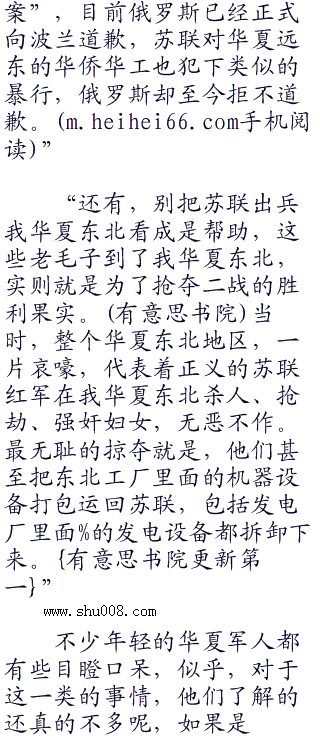 案”，目前俄罗斯已经正式
向波兰道歉，苏联对华夏远
东的华侨华工也犯下类似的
暴行，俄罗斯却至今拒不道
歉。(m.heihei66.com手机阅
读)”
“还有，别把苏联出兵
我华夏东北看成是帮助，这
些老毛子到了我华夏东北，
实则就是为了抢夺二战的胜
利果实。(有意思书院)当
时，整个华夏东北地区，一
片哀嚎，代表着正义的苏联
红军在我华夏东北杀人、抢
劫、强奸妇女，无恶不作。
最无耻的掠夺就是，他们甚
至把东北工厂里面的机器设
备打包运回苏联，包括发电
厂里面%的发电设备都拆卸下
来。{有意思书院更新第
一}”
www.shu008.com
不少年轻的华夏军人都
有些目瞪口呆，似乎，对于
这一类的事情，他们了解的
还真的不多呢，如果是